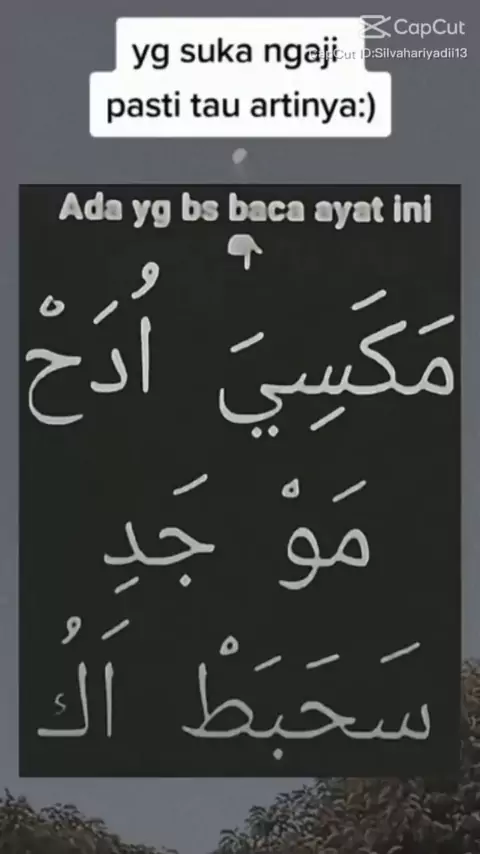 CapCut
CapCut ID:Silvahariyadii13
yg suka ngaji
pasti tau artinya:)
Ada yg bs baca ayat ini
مَكَسِيَ اُدَحْ
مَوْ جَدِ
سَحَبَطْ اَكُ